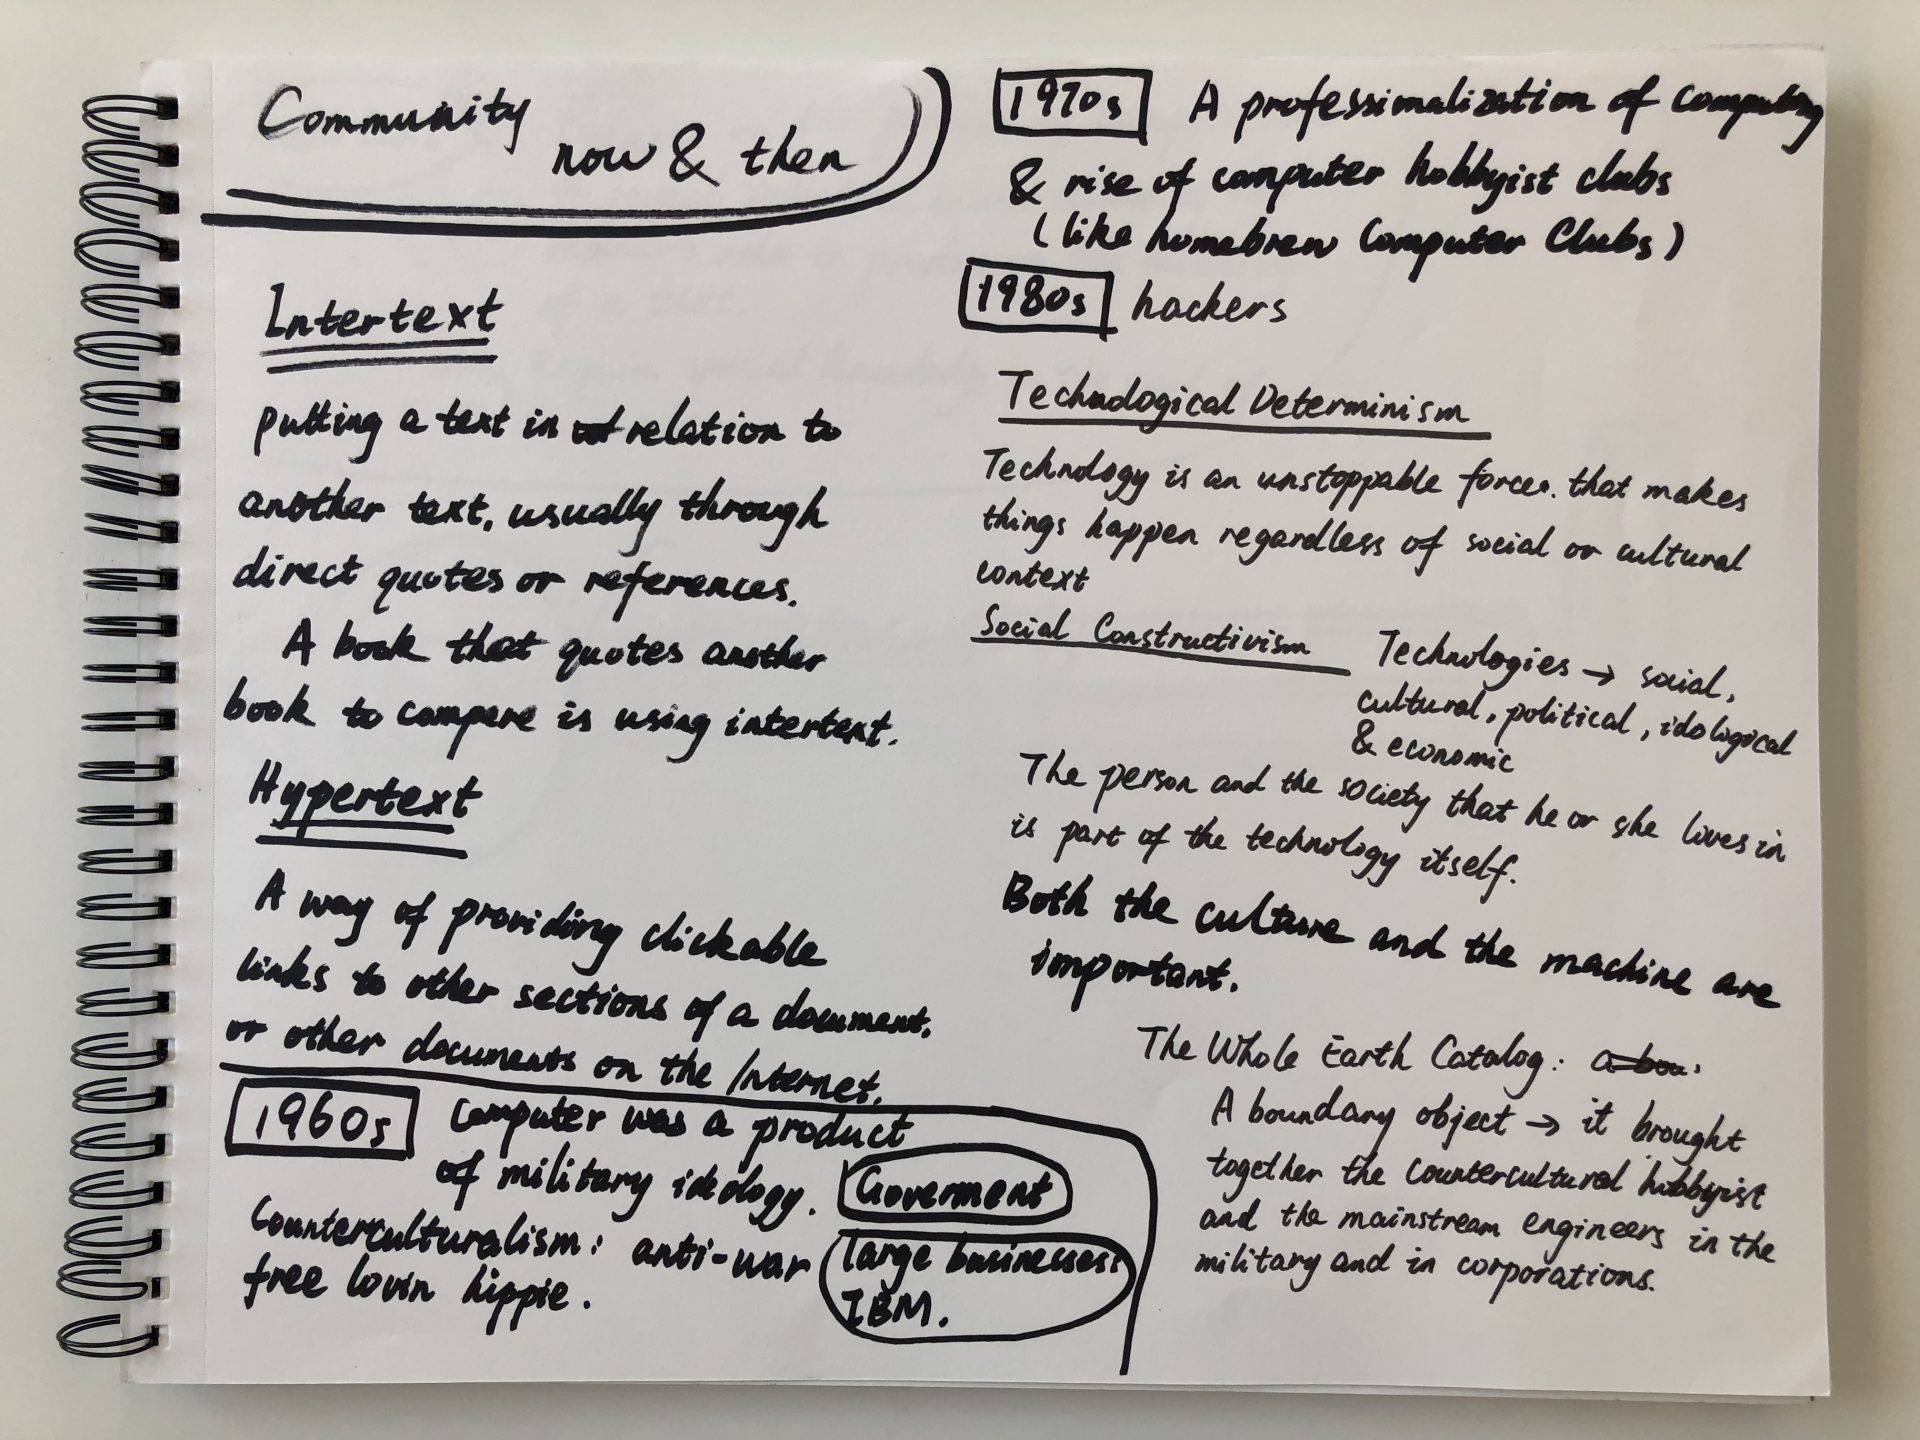 Community
now & then
Intertext
putting a text in relation to
another text, usually through
direct quotes or references.
A book that quotes another
book to compare is using intertext.
Hypertext
A way of providing clickable
links to other sections of a document,
or other documents on the Internet.
1960s Computer was a product
of military ideology. Goverment
Counterculturalism: anti-war large businesses:
free lovin hippie. IBM.
1970s A professionalization of computing
& rise of computer hobbyist clubs
(like homebrew Computer Clubs)
1980s hackers
Technological Determinism
Technology is an unstoppable force. that makes
things happen regardless of social or cultural
context
Social Constructivism Technologies → social,
cultural, political, idological
& economic
The person and the society that he or she loves in
is part of the technology itself.
Both the culture and the machine are
important.
The Whole Earth Catalog: a bou.
A boundary object → it brought
together the countercultural hobbyist
and the mainstream engineers in the
military and in corporations.